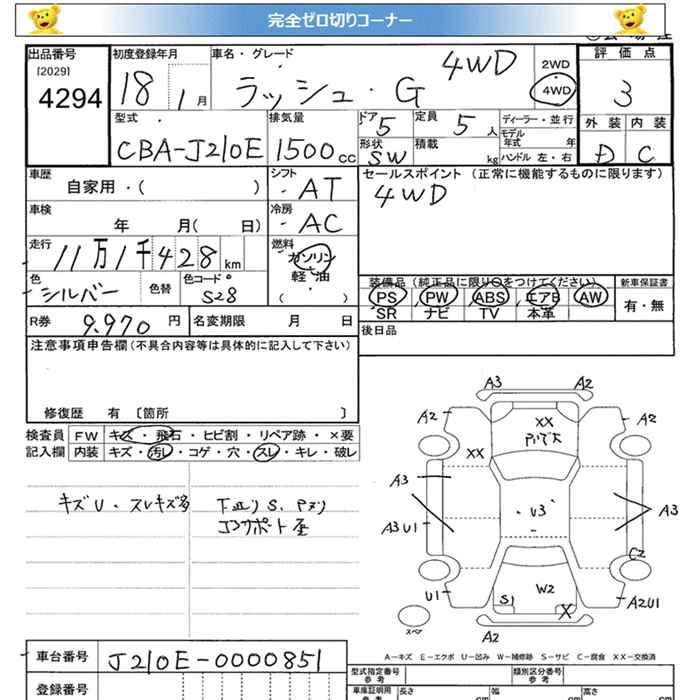 完全ゼロ切りコーナー
出品番号
[2029]
4294
初度登録年月
18 1月
車名・グレード
ラッシュ・G 4WD
2WD
4WD
評価点
3
外装 内装
D C
型式
CBA-J210E
排気量
1500cc
ドア
5
定員
5人
形状
SW
積載
kg
ディーラー・並行
モデル年式 年
ハンドル 左・右
車歴
自家用・( )
シフト
AT
セールスポイント (正常に機能するものに限ります)
4WD
車検
年 月( 日)
冷房
AC
走行
11万1千428km
燃料
ガソリン
軽・油
( )
色
シルバー
色替
色コード
S28
装備品 (純正品に限り○をつけてください)
PS PW ABS エアB AW
SR ナビ TV 本革
新車保証書
有・無
R券
9.970円
名変期限 月 日
後日品
注意事項申告欄(不具合内容等は具体的に記入して下さい)
修復歴 有 〔箇所 〕
検査員
記入欄
FW キズ・飛石・ヒビ割・リペア跡・×要
内装 キズ・汚レ・コゲ・穴・スレ・キレ・破レ
キズU・スレキズ多
下廻りS、Pヌリ
コアサポート歪
A3 A2
A2 A2
XX
XX
A3
U3
A3
A3U1
C2
U1
S1
W2
X
A2U1
A2
スペア
A－キズ E－エクボ U－凹み W－補修跡 S－サビ C－腐食 XX－交換済
車台番号
J210E-0000851
登録番号
型式指定番号
参考
類別区分番号
参考
車庫証明用
参考
長さ cm
幅 cm
高さ cm